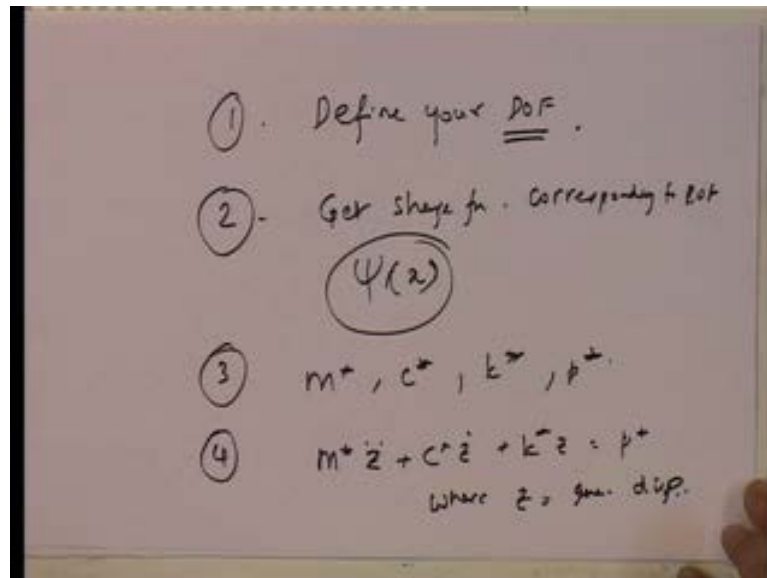 ① . Define your DOF .
② - Get shape fn . corresponding to DOF
ψ(x)
③ m* , c* , k* , p* .
④ m* z̈ + c* ż + k* z = p*
where z = gen. disp.